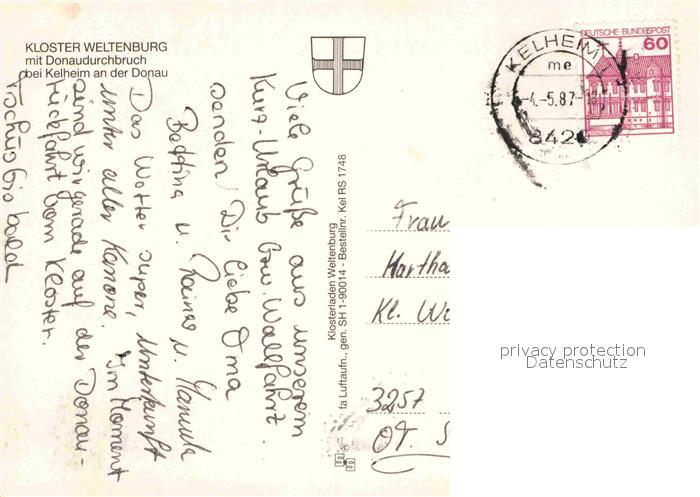 KLOSTER WELTENBURG
mit Donaudurchbruch
bei Kelheim an der Donau
DEUTSCHE BUNDESPOST
60
KELHEIM
me
-4.-5.87-
842
Viele Grüße aus unserem
Kurz-Urlaub bzw. Wallfahrt.
senden Dir liebe Oma
Bettina u. Rainer u. Manuela
Das Wetter super, Unterkunft
unter aller Kanone. Im Moment
sind wir gerade auf der Donau-
rückfahrt vom Kloster.
Tschüs bis bald
Klosterladen Weltenburg
fa Luftaufn., gen. SH 1-90014 - Bestellnr. Kel RS 1748
Frau
Martha
Kl. Wi
3257
OT. S
privacy protection
Datenschutz